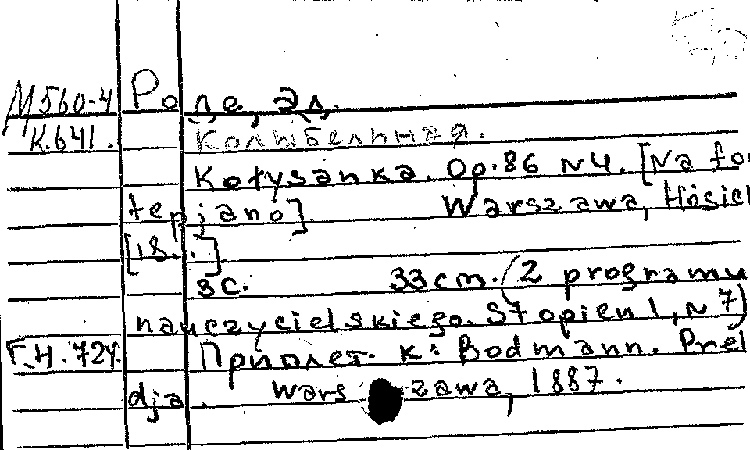 М560-4 Роде, Эд.
К.641. Колыбельная.
Kołysanka. Op. 86 N4. [Na fo
tepjano] Warszawa, Hösic
[18..]
3с. 33cm. (2 programu
nauczycielskiego. Stopień I, N 7)
Г.Н.724. Приплет. к: Bodmann. Prel
dja. Warszawa, 1887.